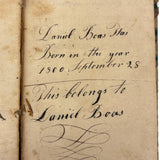 Daniel Boas Was
Born in the year
1800 September 28
This belongs to
Daniel Boas